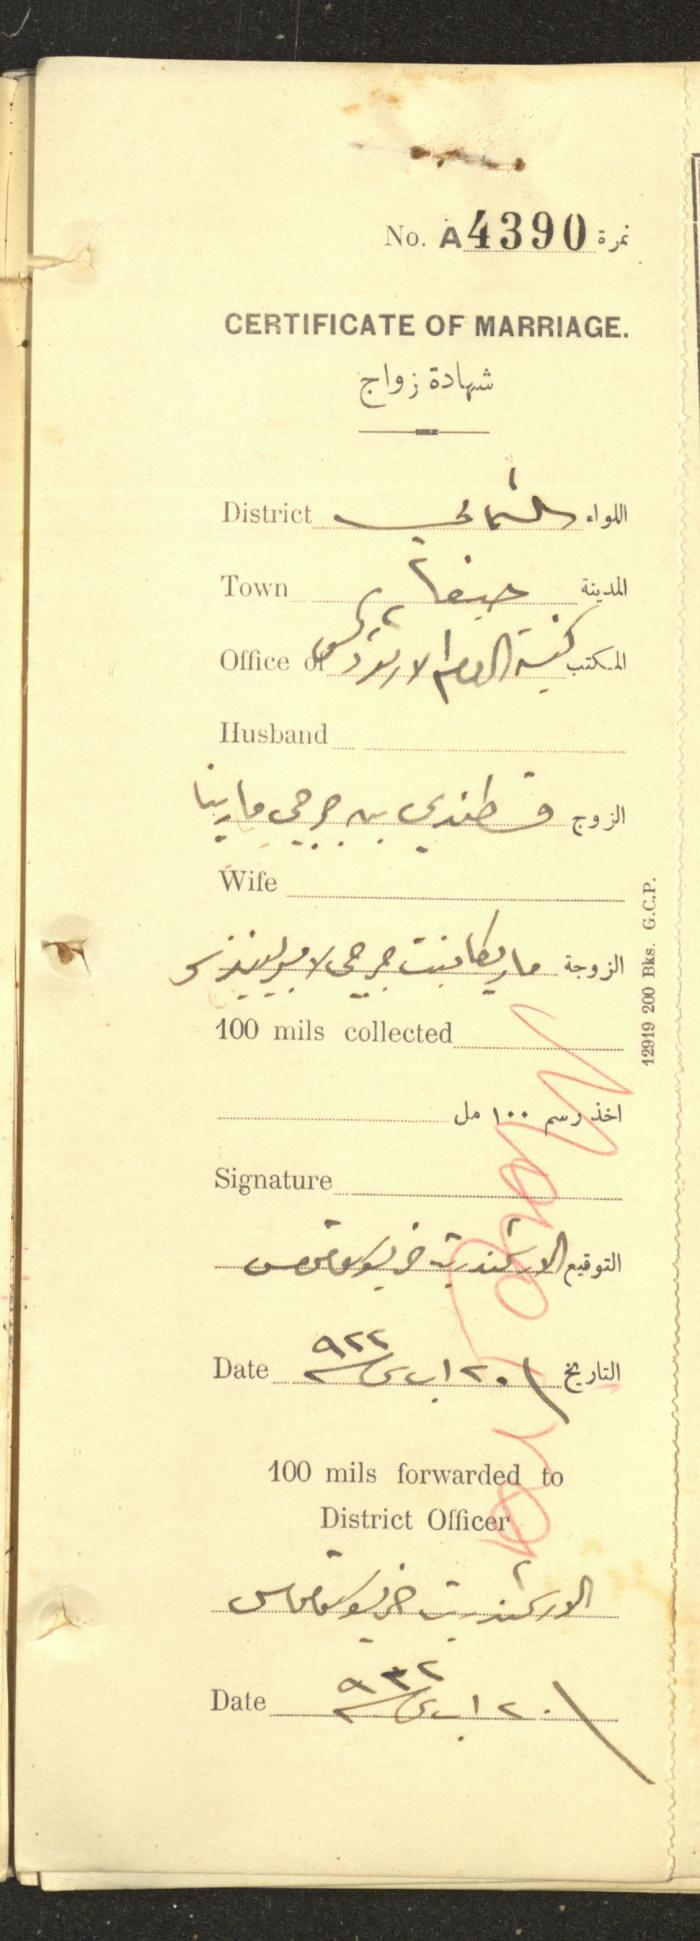 No. A 4390 نمرة
CERTIFICATE OF MARRIAGE.
شهادة زواج
District الشمالي اللواء
Town حيفا المدينة
Office of كنيسة الروم الارثوذكس المكتب
Husband
الزوج قسطندي بن جرجي مارينا
Wife
الزوجة ماريكا بنت جرجي
100 mils collected
اخذ رسم ١٠٠ مل
Signature
التوقيع الارشمندريت
Date ٢٠ اب سنة التاريخ
100 mils forwarded to
District Officer
الارشمندريت
Date ٢٠ اب سنة ٩٣٢
12919 200 Bks. G.C.P.